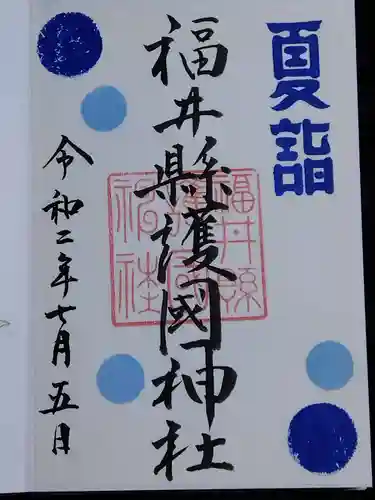 夏詣
福井縣護國神社
福井縣護國神社
令和二年七月五日